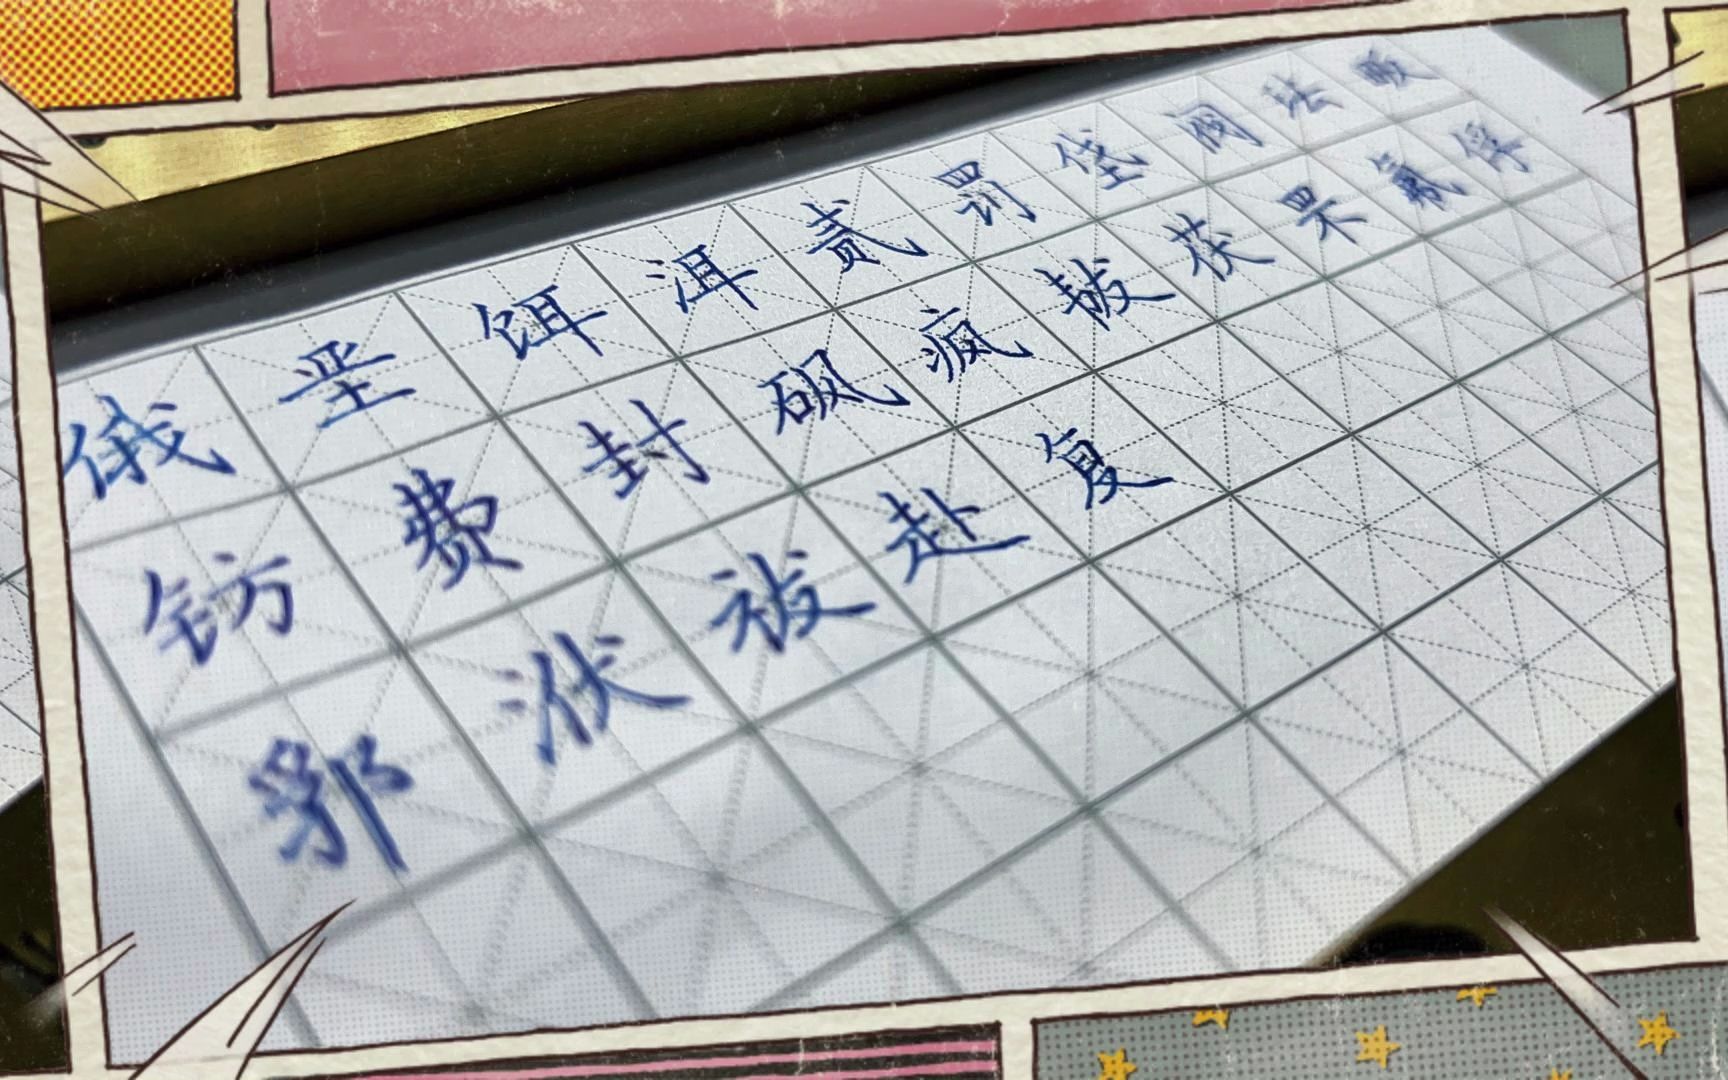 俄垩饵洱贰罚垡阀珐畈
钫费封砜疯韨茯罘氟俘
郛洑祓赴复